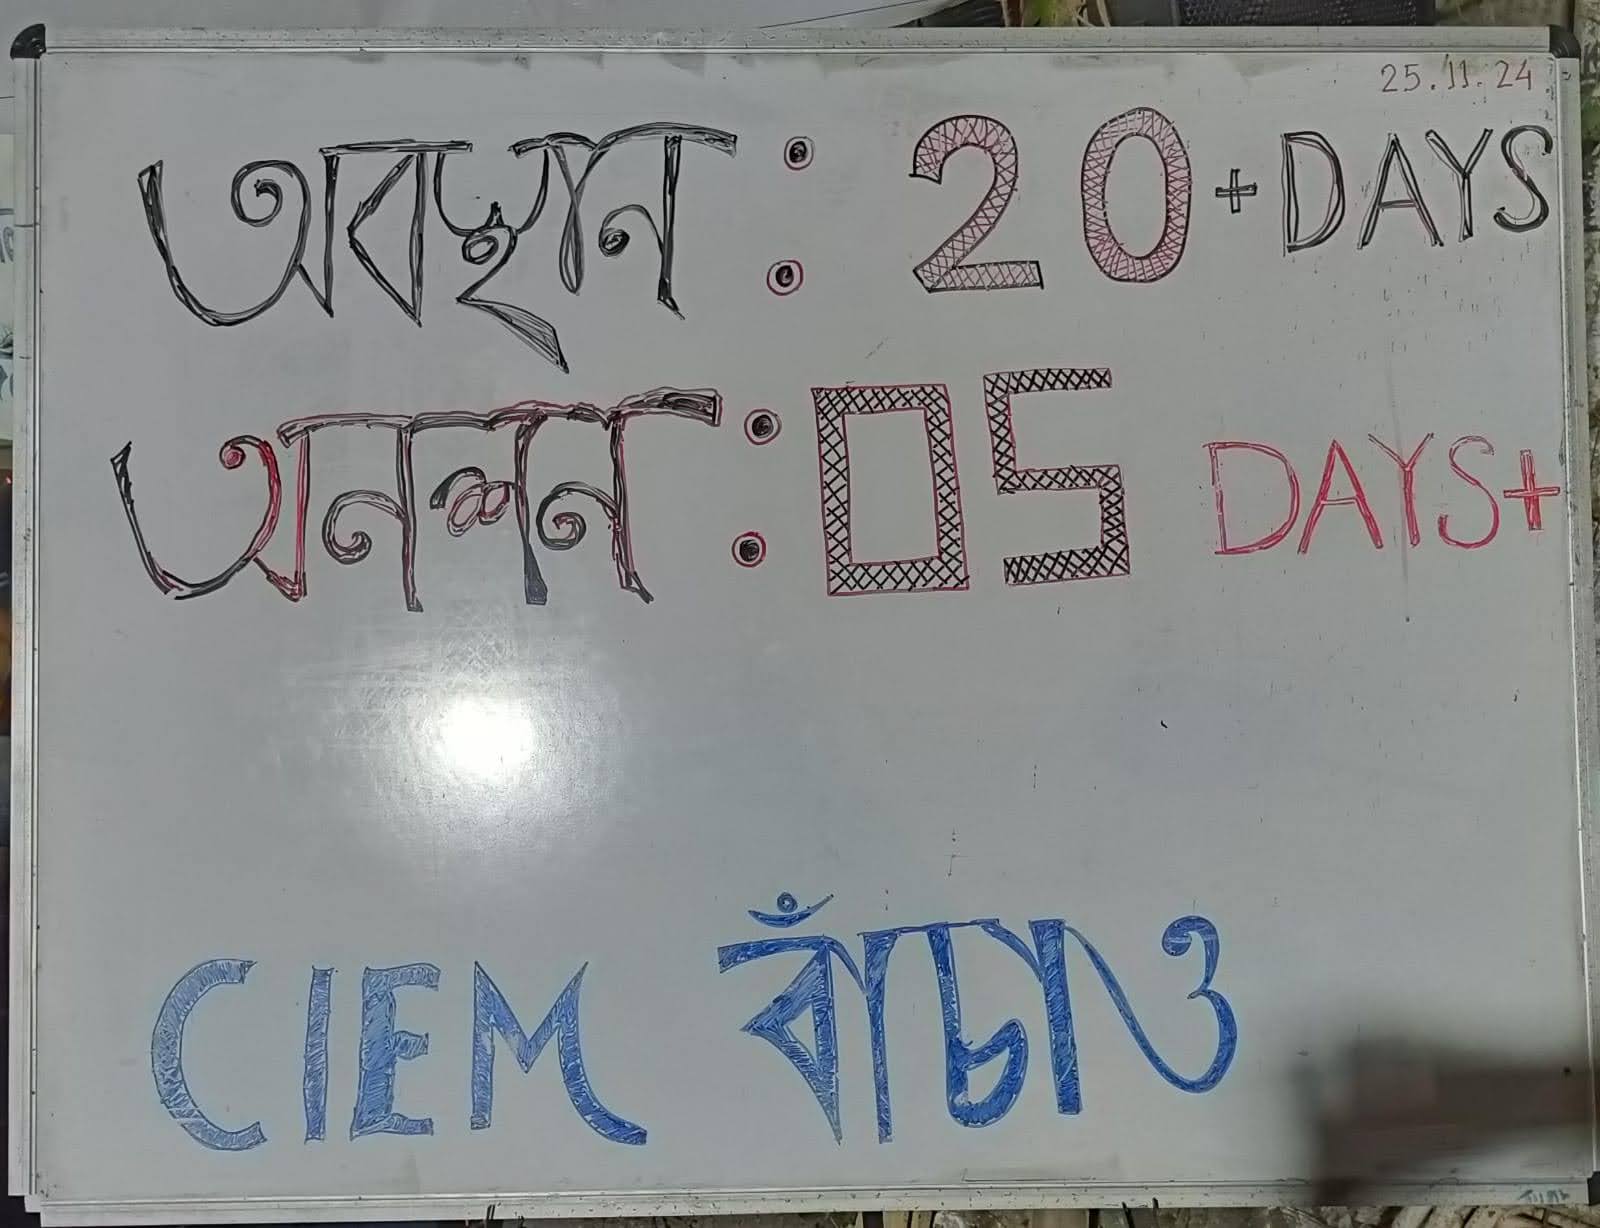 25.11.24
অবস্থান : 20+ DAYS
অনশন : 05 DAYS+
CIEM বাঁচাও